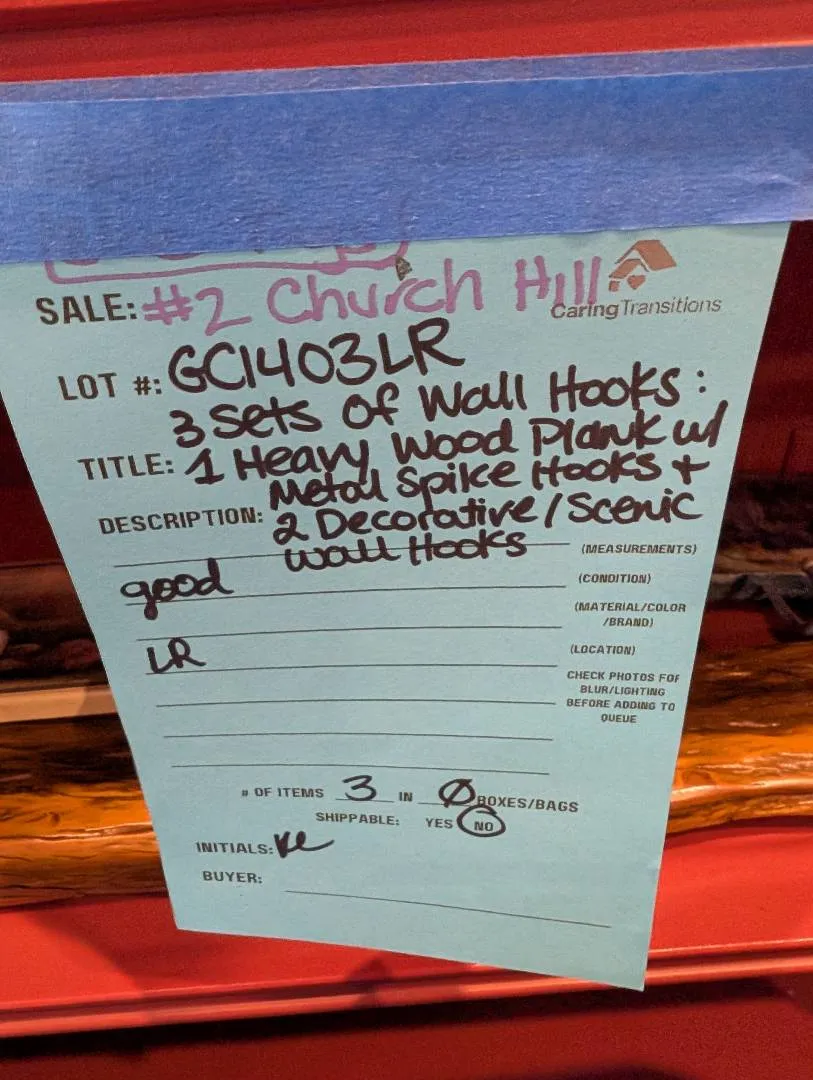 SALE: #2 Church Hill
CaringTransitions
LOT #: GC1403LR
3 Sets of Wall Hooks:
TITLE: 1 Heavy Wood Plank w/
Metal Spike Hooks +
DESCRIPTION: 2 Decorative/Scenic
Wall Hooks
(MEASUREMENTS)
good (CONDITION)
(MATERIAL/COLOR
/BRAND)
LR (LOCATION)
CHECK PHOTOS FOR
BLUR/LIGHTING
BEFORE ADDING TO
QUEUE
# OF ITEMS 3 IN Ø BOXES/BAGS
SHIPPABLE: YES NO
INITIALS:
BUYER: